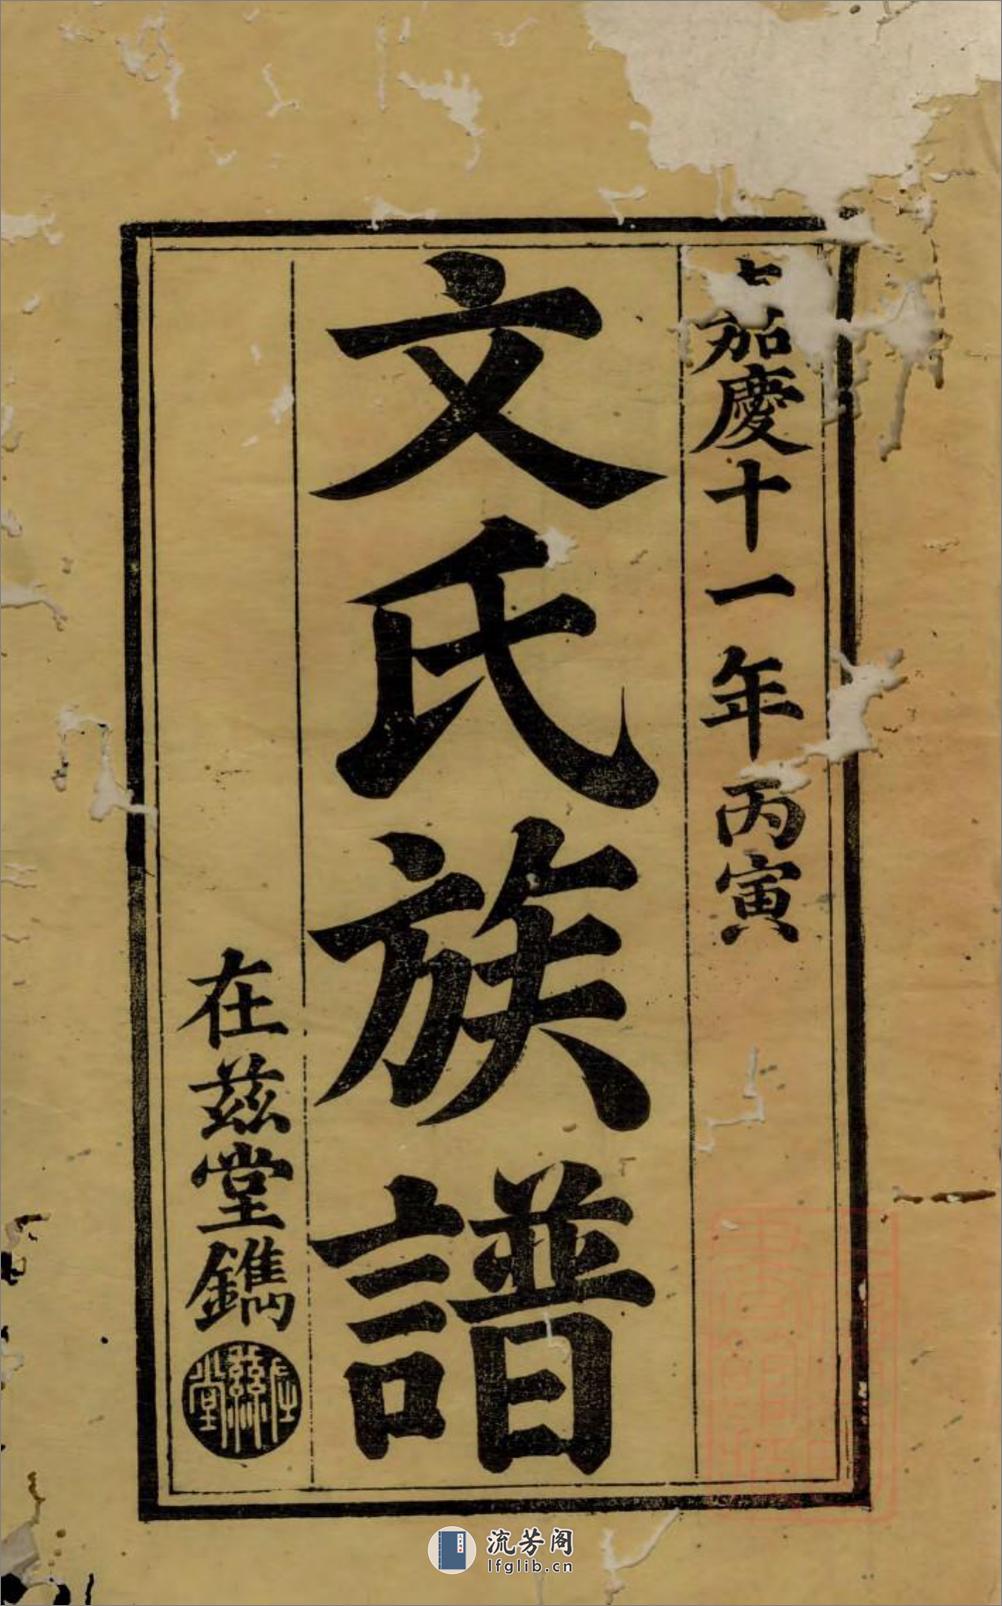 嘉慶十一年丙寅
文氏族譜
在兹堂鐫
在茲堂
流芳阁
lfglib.cn